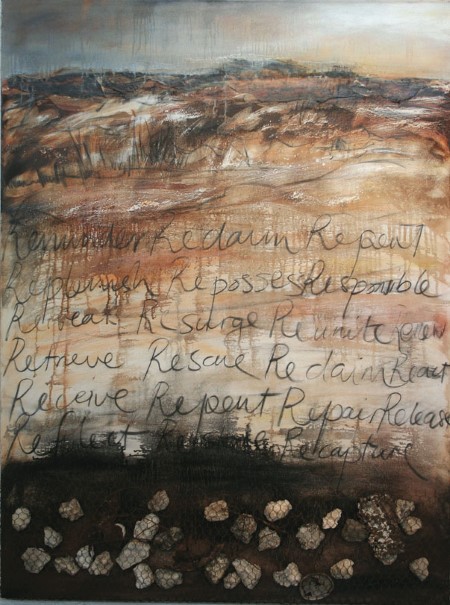 Remember Reclaim Repent
Replenish Repossess Responsible
Retreat Resurge Reunite renew
Retrieve Rescue Reclaim React
Receive Repent Repair Release
Reflect Recapture